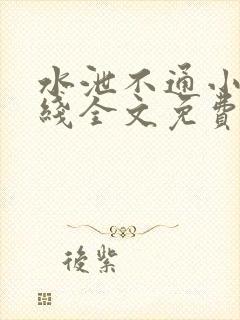 水泄不通小
綫全文免費
後紫